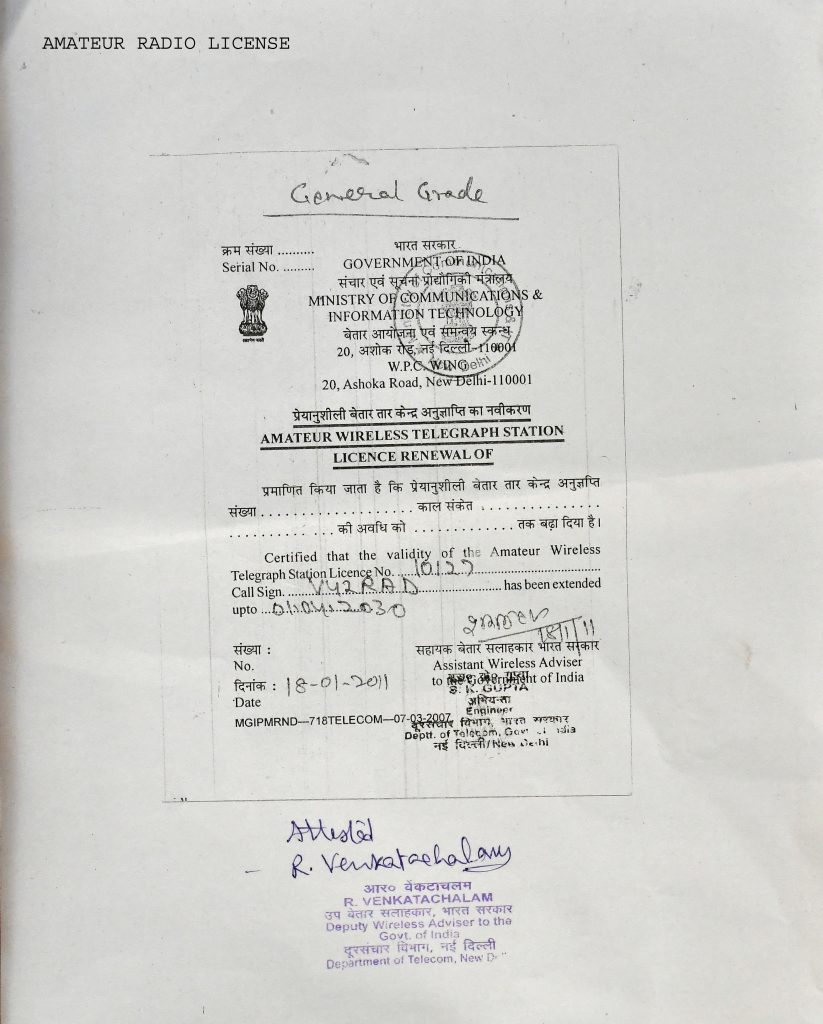 AMATEUR RADIO LICENSE
General Grade
क्रम संख्या ..........
Serial No. .........
भारत सरकार
GOVERNMENT OF INDIA
संचार एवं सूचना प्रौद्योगिकी मंत्रालय
MINISTRY OF COMMUNICATIONS &
INFORMATION TECHNOLOGY
बेतार आयोजना एवं समन्वय स्कन्ध
20, अशोक रोड, नई दिल्ली-110001
W.P.C. WING
20, Ashoka Road, New Delhi-110001
प्रेयानुशीली बेतार तार केन्द्र अनुज्ञाप्ति का नवीकरण
AMATEUR WIRELESS TELEGRAPH STATION
LICENCE RENEWAL OF
प्रमाणित किया जाता है कि प्रेयानुशीली बेतार तार केन्द्र अनुज्ञप्ति
संख्या .................... काल संकेत ................
.............. की अवधि को ............. तक बढ़ा दिया है।
Certified that the validity of the Amateur Wireless
Telegraph Station Licence No. ...10127...
Call Sign. ...VU2RAD... has been extended
upto ...01.04.2030
18/1/11
संख्या :
No.
सहायक बेतार सलाहकार भारत सरकार
Assistant Wireless Adviser
to the Government of India
दिनांक : 18-01-2011
Date
S. K. GUPTA
अभियन्ता
Engineer
MGIPMRND—718TELECOM—07-03-2007
दूरसंचार विभाग, भारत सरकार
Deptt. of Telecom, Govt. of India
नई दिल्ली/New Delhi
Attested
R. Venkatachalam
आर० वेंकटाचलम
R. VENKATACHALAM
उप बेतार सलाहकार, भारत सरकार
Deputy Wireless Adviser to the
Govt. of India
दूरसंचार विभाग, नई दिल्ली
Department of Telecom, New D